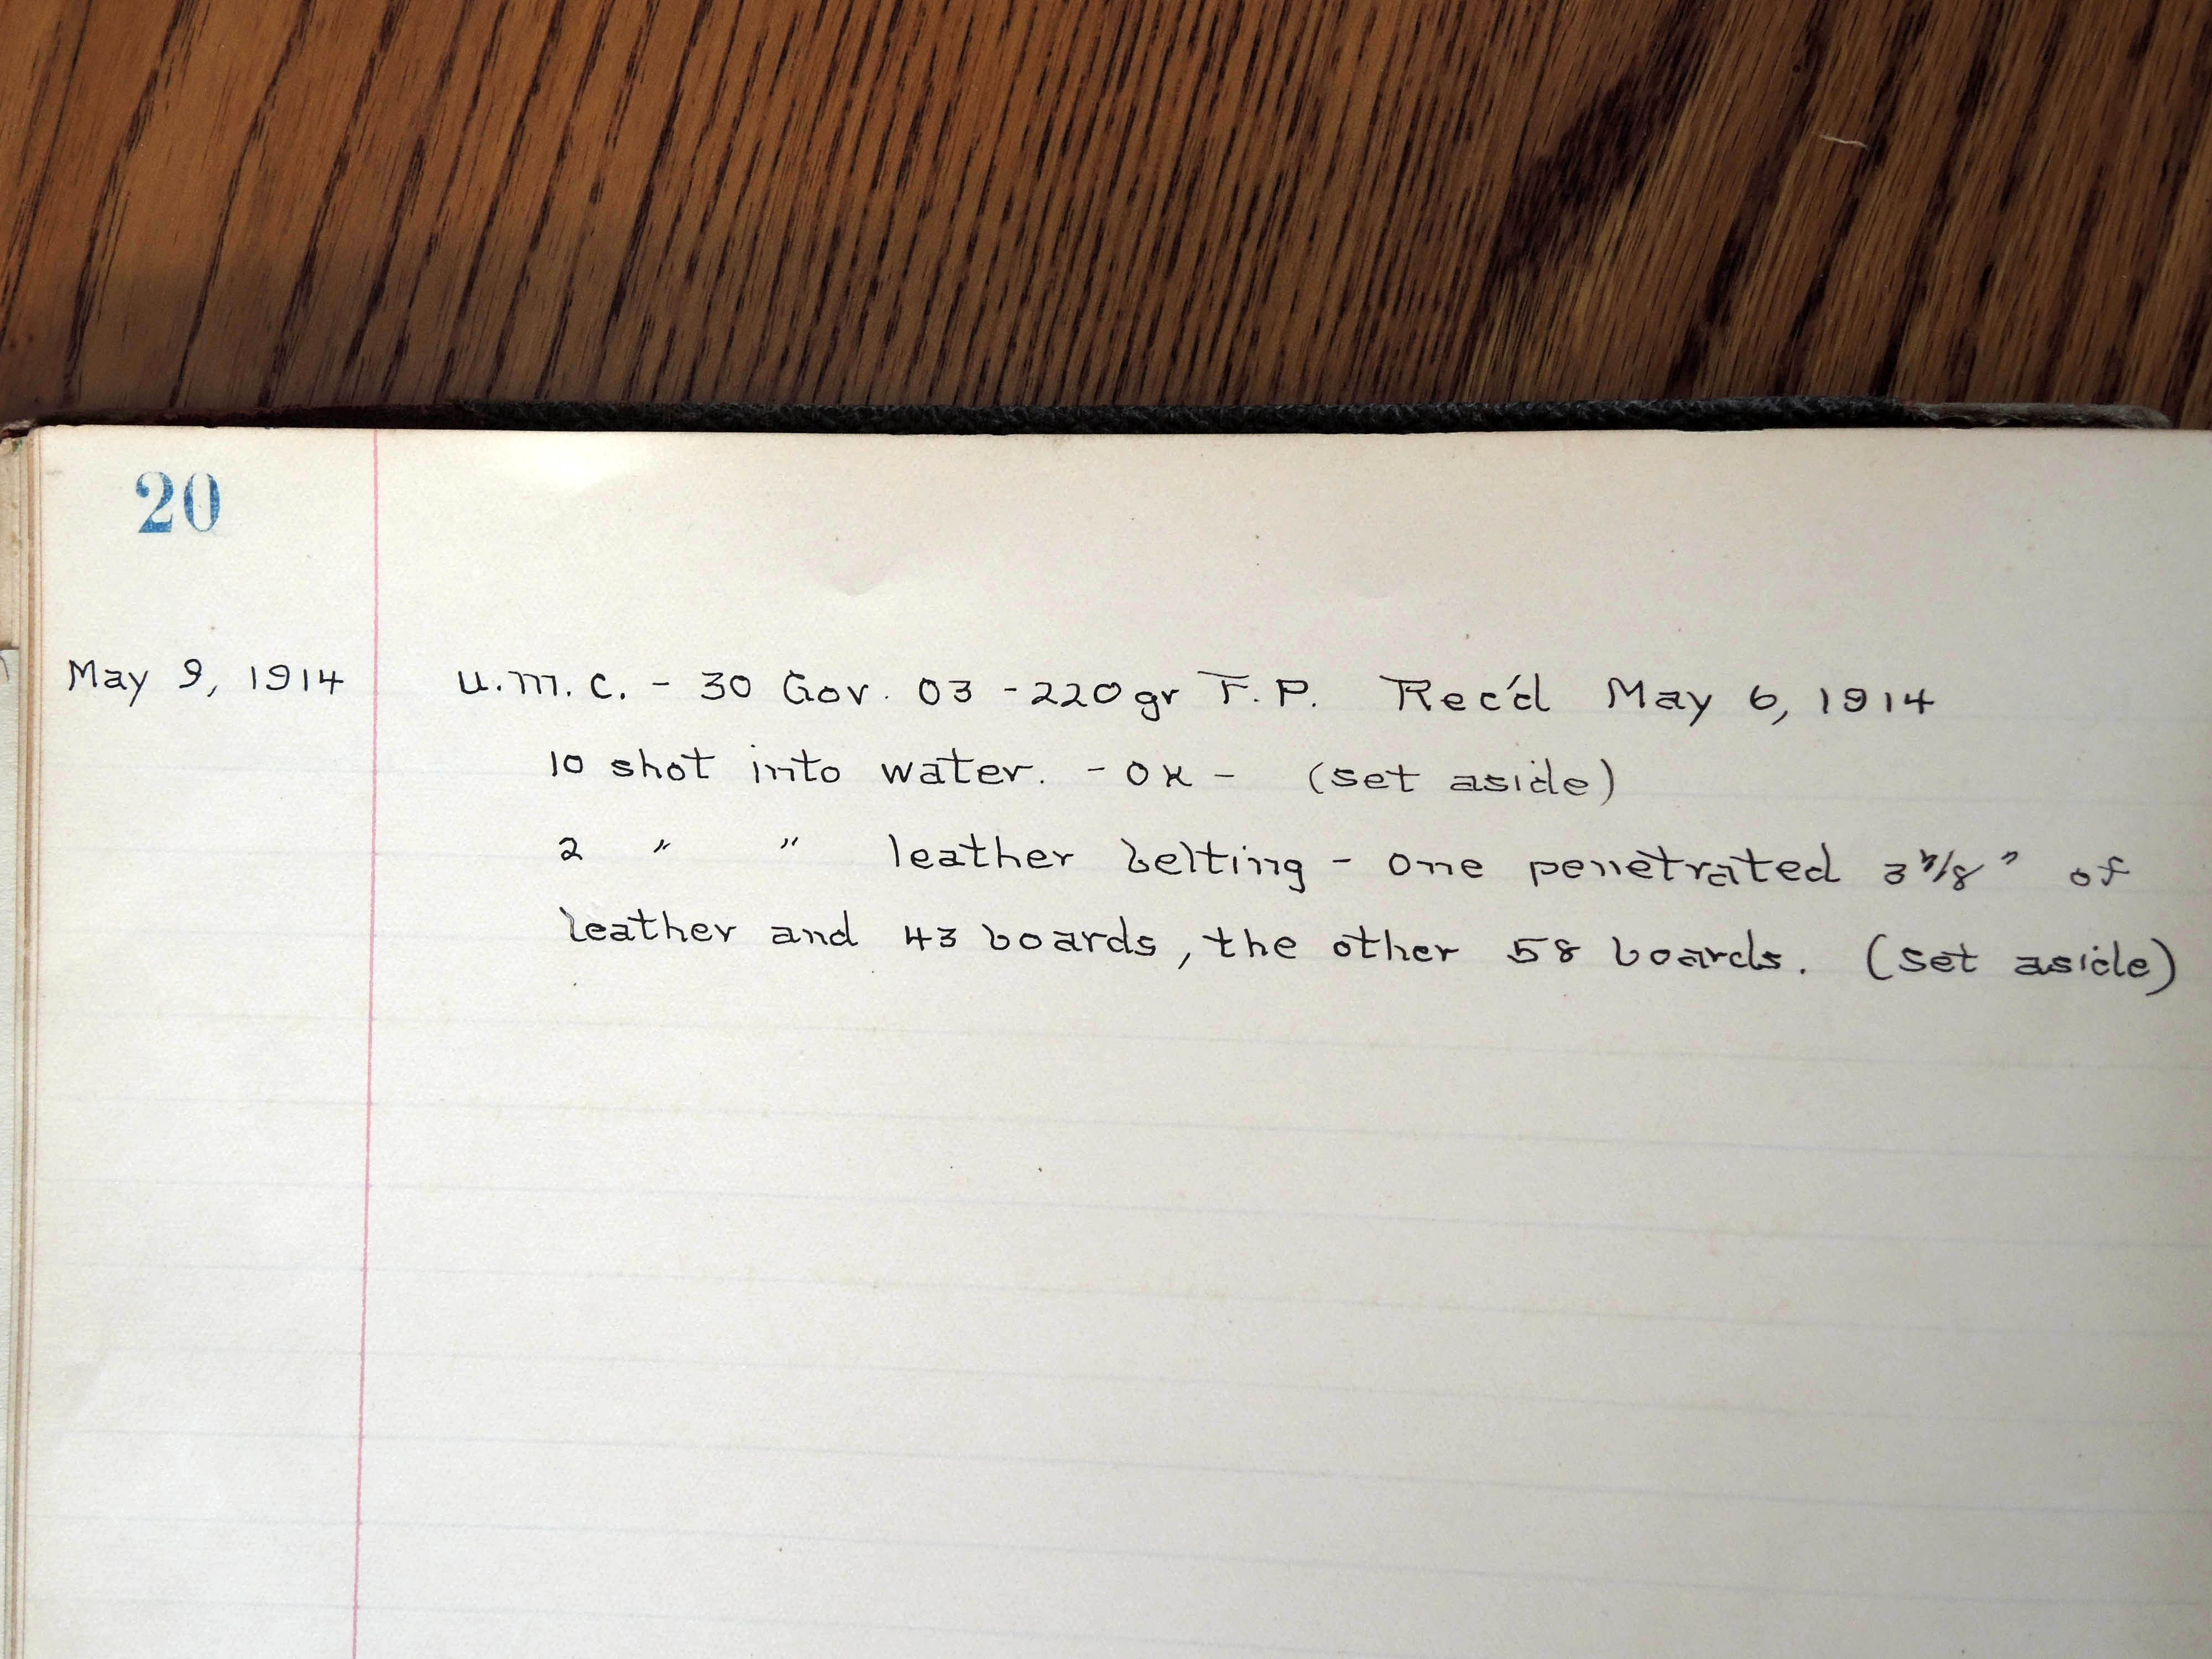 20
May 9, 1914 U.M.C. - 30 Gov. 03 - 220 gr F.P. Rec'd May 6, 1914
10 shot into water. - OK - (set aside)
2 " " leather belting - one penetrated 3 7/8" of
leather and 43 boards, the other 58 boards. (set aside)